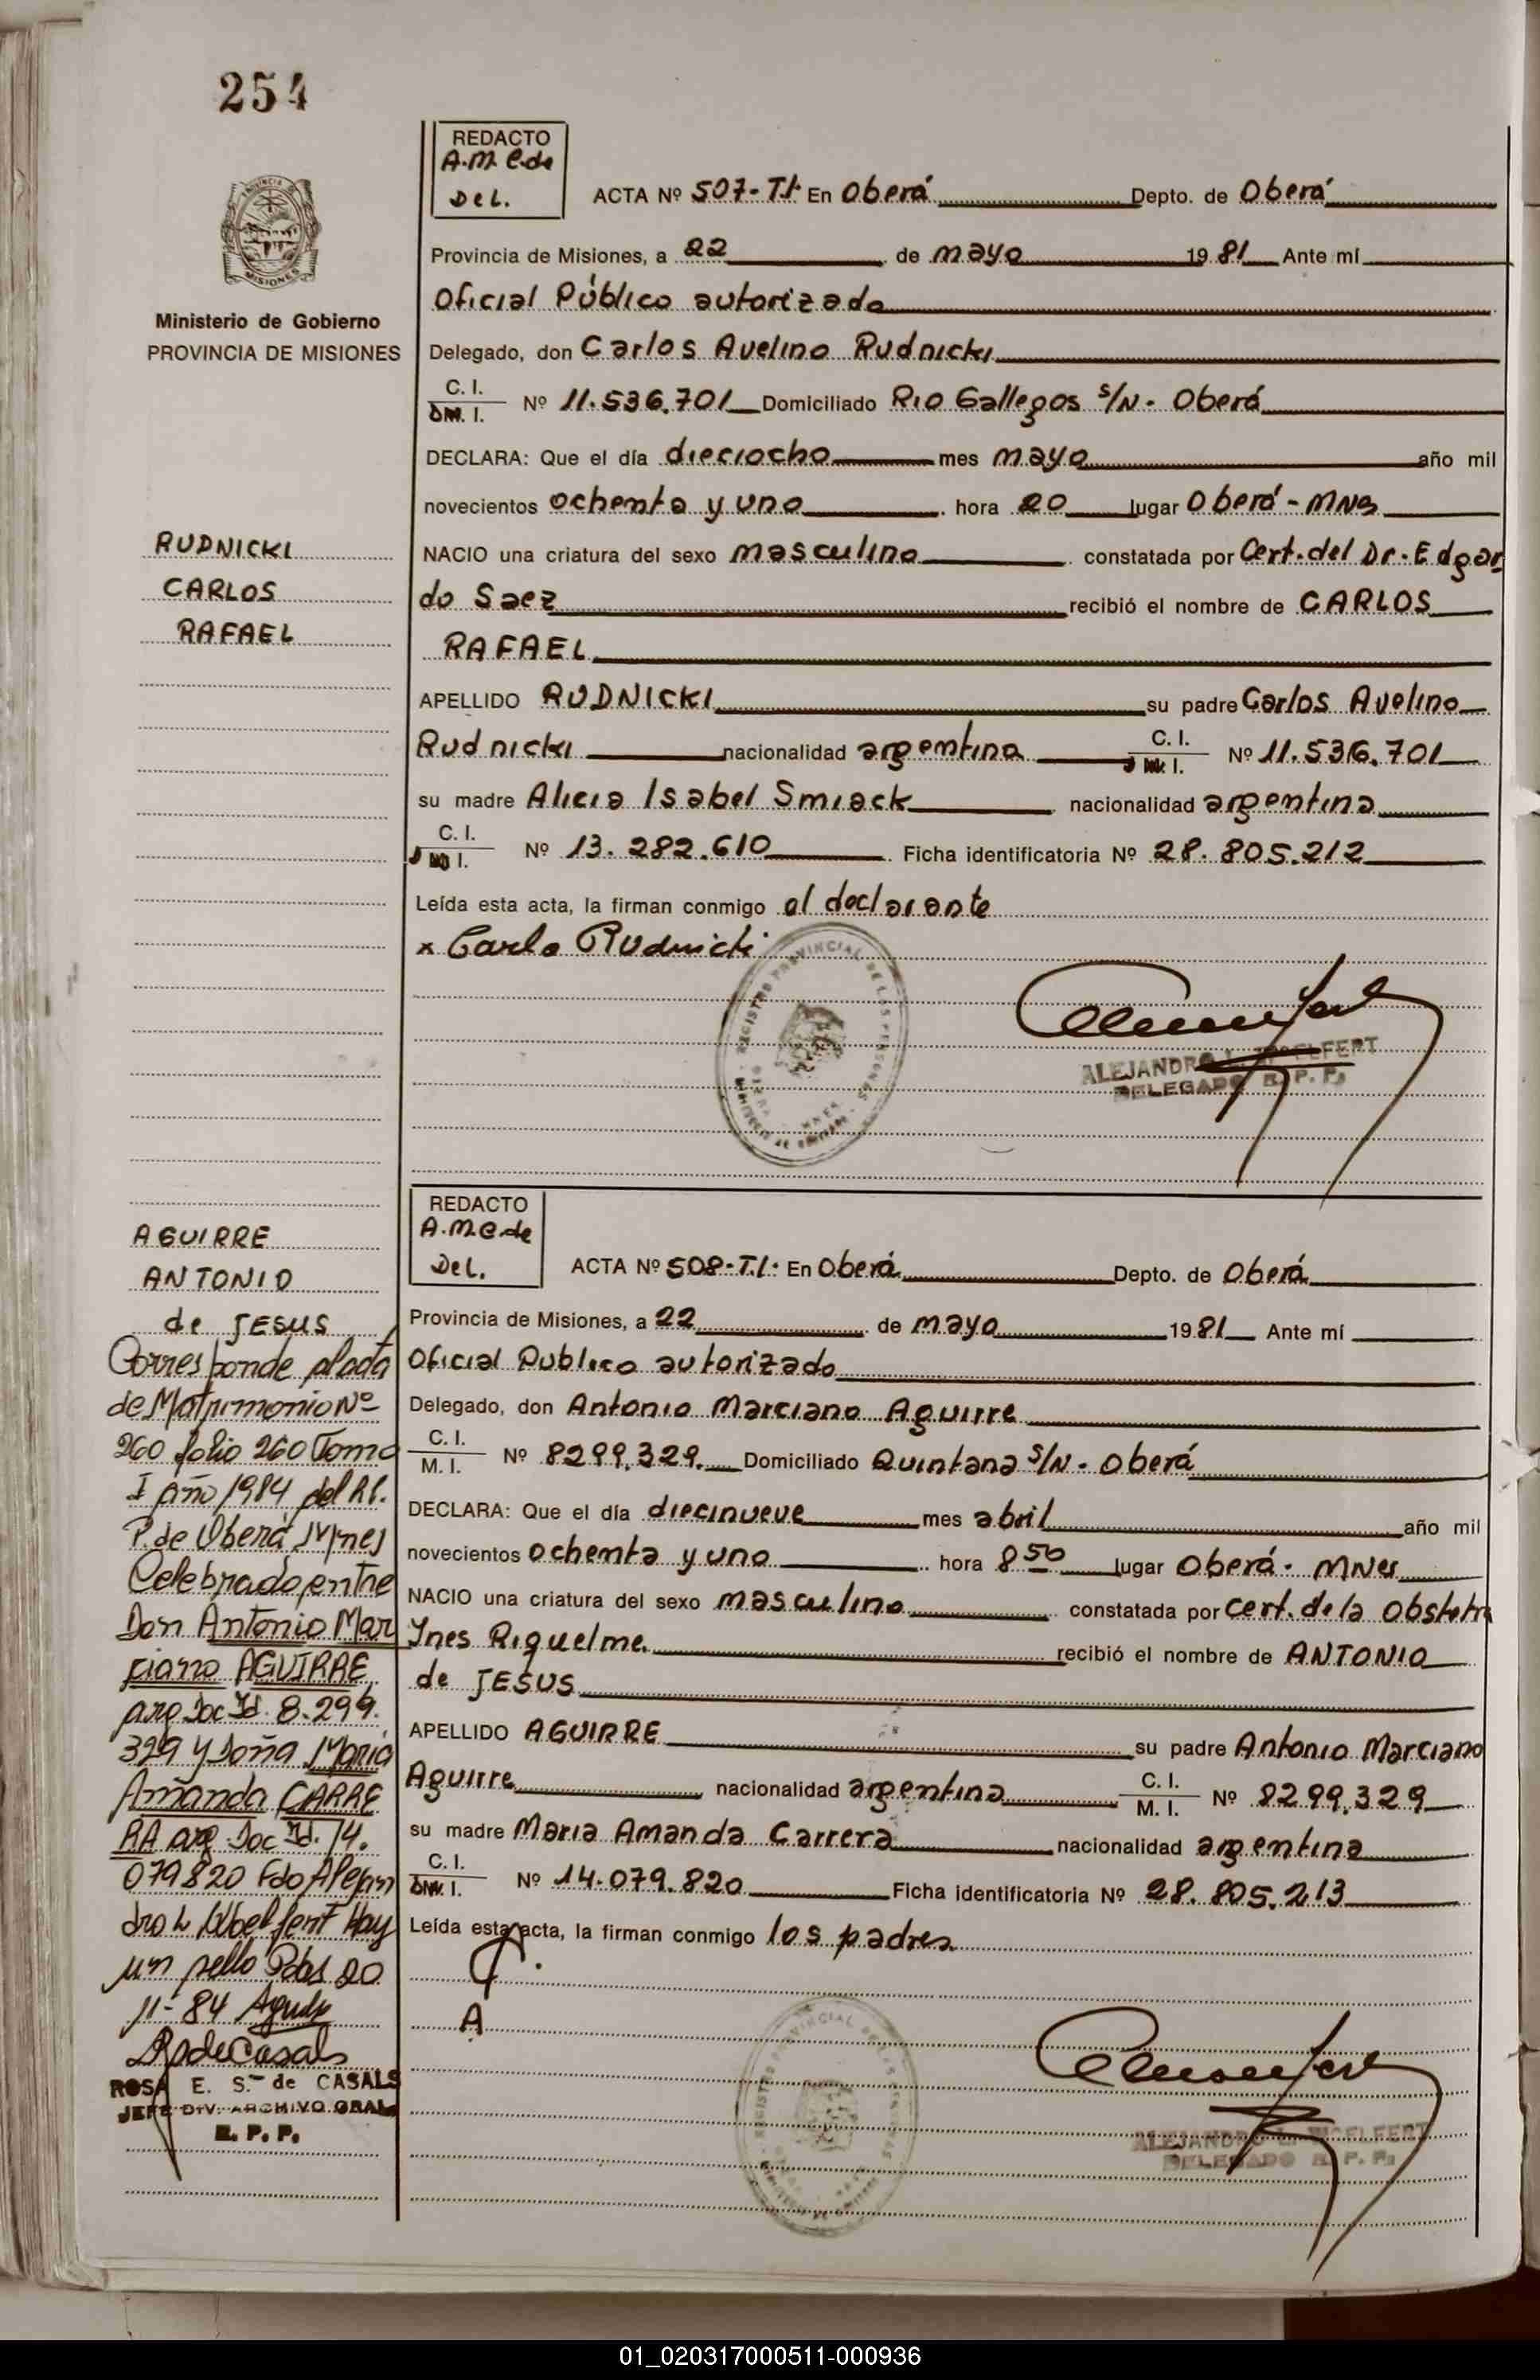 254
REDACTO
A.M. C. de
Del.
ACTA Nº 507-T.I. En Oberá Depto. de Oberá
Provincia de Misiones, a 22 de mayo 1981 Ante mí
Oficial Público autorizado
Ministerio de Gobierno
PROVINCIA DE MISIONES
Delegado, don Carlos Avelino Rudnicki
C. I.
M. I. Nº 11.536.701 Domiciliado Rio Gallegos S/N. Oberá
DECLARA: Que el día dieciocho mes mayo año mil
novecientos ochenta y uno hora 20 lugar Oberá - MNes
RUDNICKI
CARLOS
RAFAEL
NACIO una criatura del sexo masculino constatada por Cert. del Dr. Edgar
do Saez recibió el nombre de CARLOS
RAFAEL
APELLIDO RUDNICKI su padre Carlos Avelino
Rudnicki nacionalidad argentina C. I. Nº 11.536.701
su madre Alicia Isabel Smiack nacionalidad argentina
C. I. Nº 13.282.610 Ficha identificatoria Nº 28.805.212
Leída esta acta, la firman conmigo el declarante
x Carlo Rudnicki
REGISTRO PROVINCIAL DE LAS PERSONAS
ALEJANDRO L. WOELFERT
DELEGADO R. P. P.
REDACTO
A.M.C. de
Del.
ACTA Nº 508-T.I. En Oberá Depto. de Oberá
Provincia de Misiones, a 22 de mayo 1981 Ante mí
Oficial Publico autorizado
Delegado, don Antonio Marciano Aguirre
C. I.
M. I. Nº 8299.329. Domiciliado Quintana S/N. Oberá
DECLARA: Que el día diecinueve mes abril año mil
novecientos ochenta y uno hora 8 50 lugar Oberá. MNes
NACIO una criatura del sexo masculino constatada por cert. de la Obstetri
Ynes Riquelme recibió el nombre de ANTONIO
de JESUS
APELLIDO AGUIRRE su padre Antonio Marciano
Aguirre nacionalidad argentina C. I.
M. I. Nº 8299.329
su madre Maria Amanda Carrera nacionalidad argentina
C. I. Nº 14.079.820 Ficha identificatoria Nº 28.805.213
Leída esta acta, la firman conmigo los padres
A
REGISTRO PROVINCIAL DE LAS PERSONAS
ALEJANDRO L. WOELFERT
DELEGADO R. P. P.
AGUIRRE
ANTONIO
de JESUS
Corresponde al acta
de Matrimonio Nº
260 folio 260 Tomo
I año 1984 del R.
P. de Oberá Mnes
Celebrado, entre
Don Antonio Mar
ciano AGUIRRE
arg Doc Id. 8.299.
329 y Doña Maria
Amanda CARRE
RA arg Doc Id. 14.
079820 Fdo Alejan
dro L Woelfert Hay
un sello Pdas 20
11-84
RdeCasals
ROSA E. S. de CASALS
JEFE DIV. ARCHIVO GRAL
R. P. P.
01_020317000511-000936